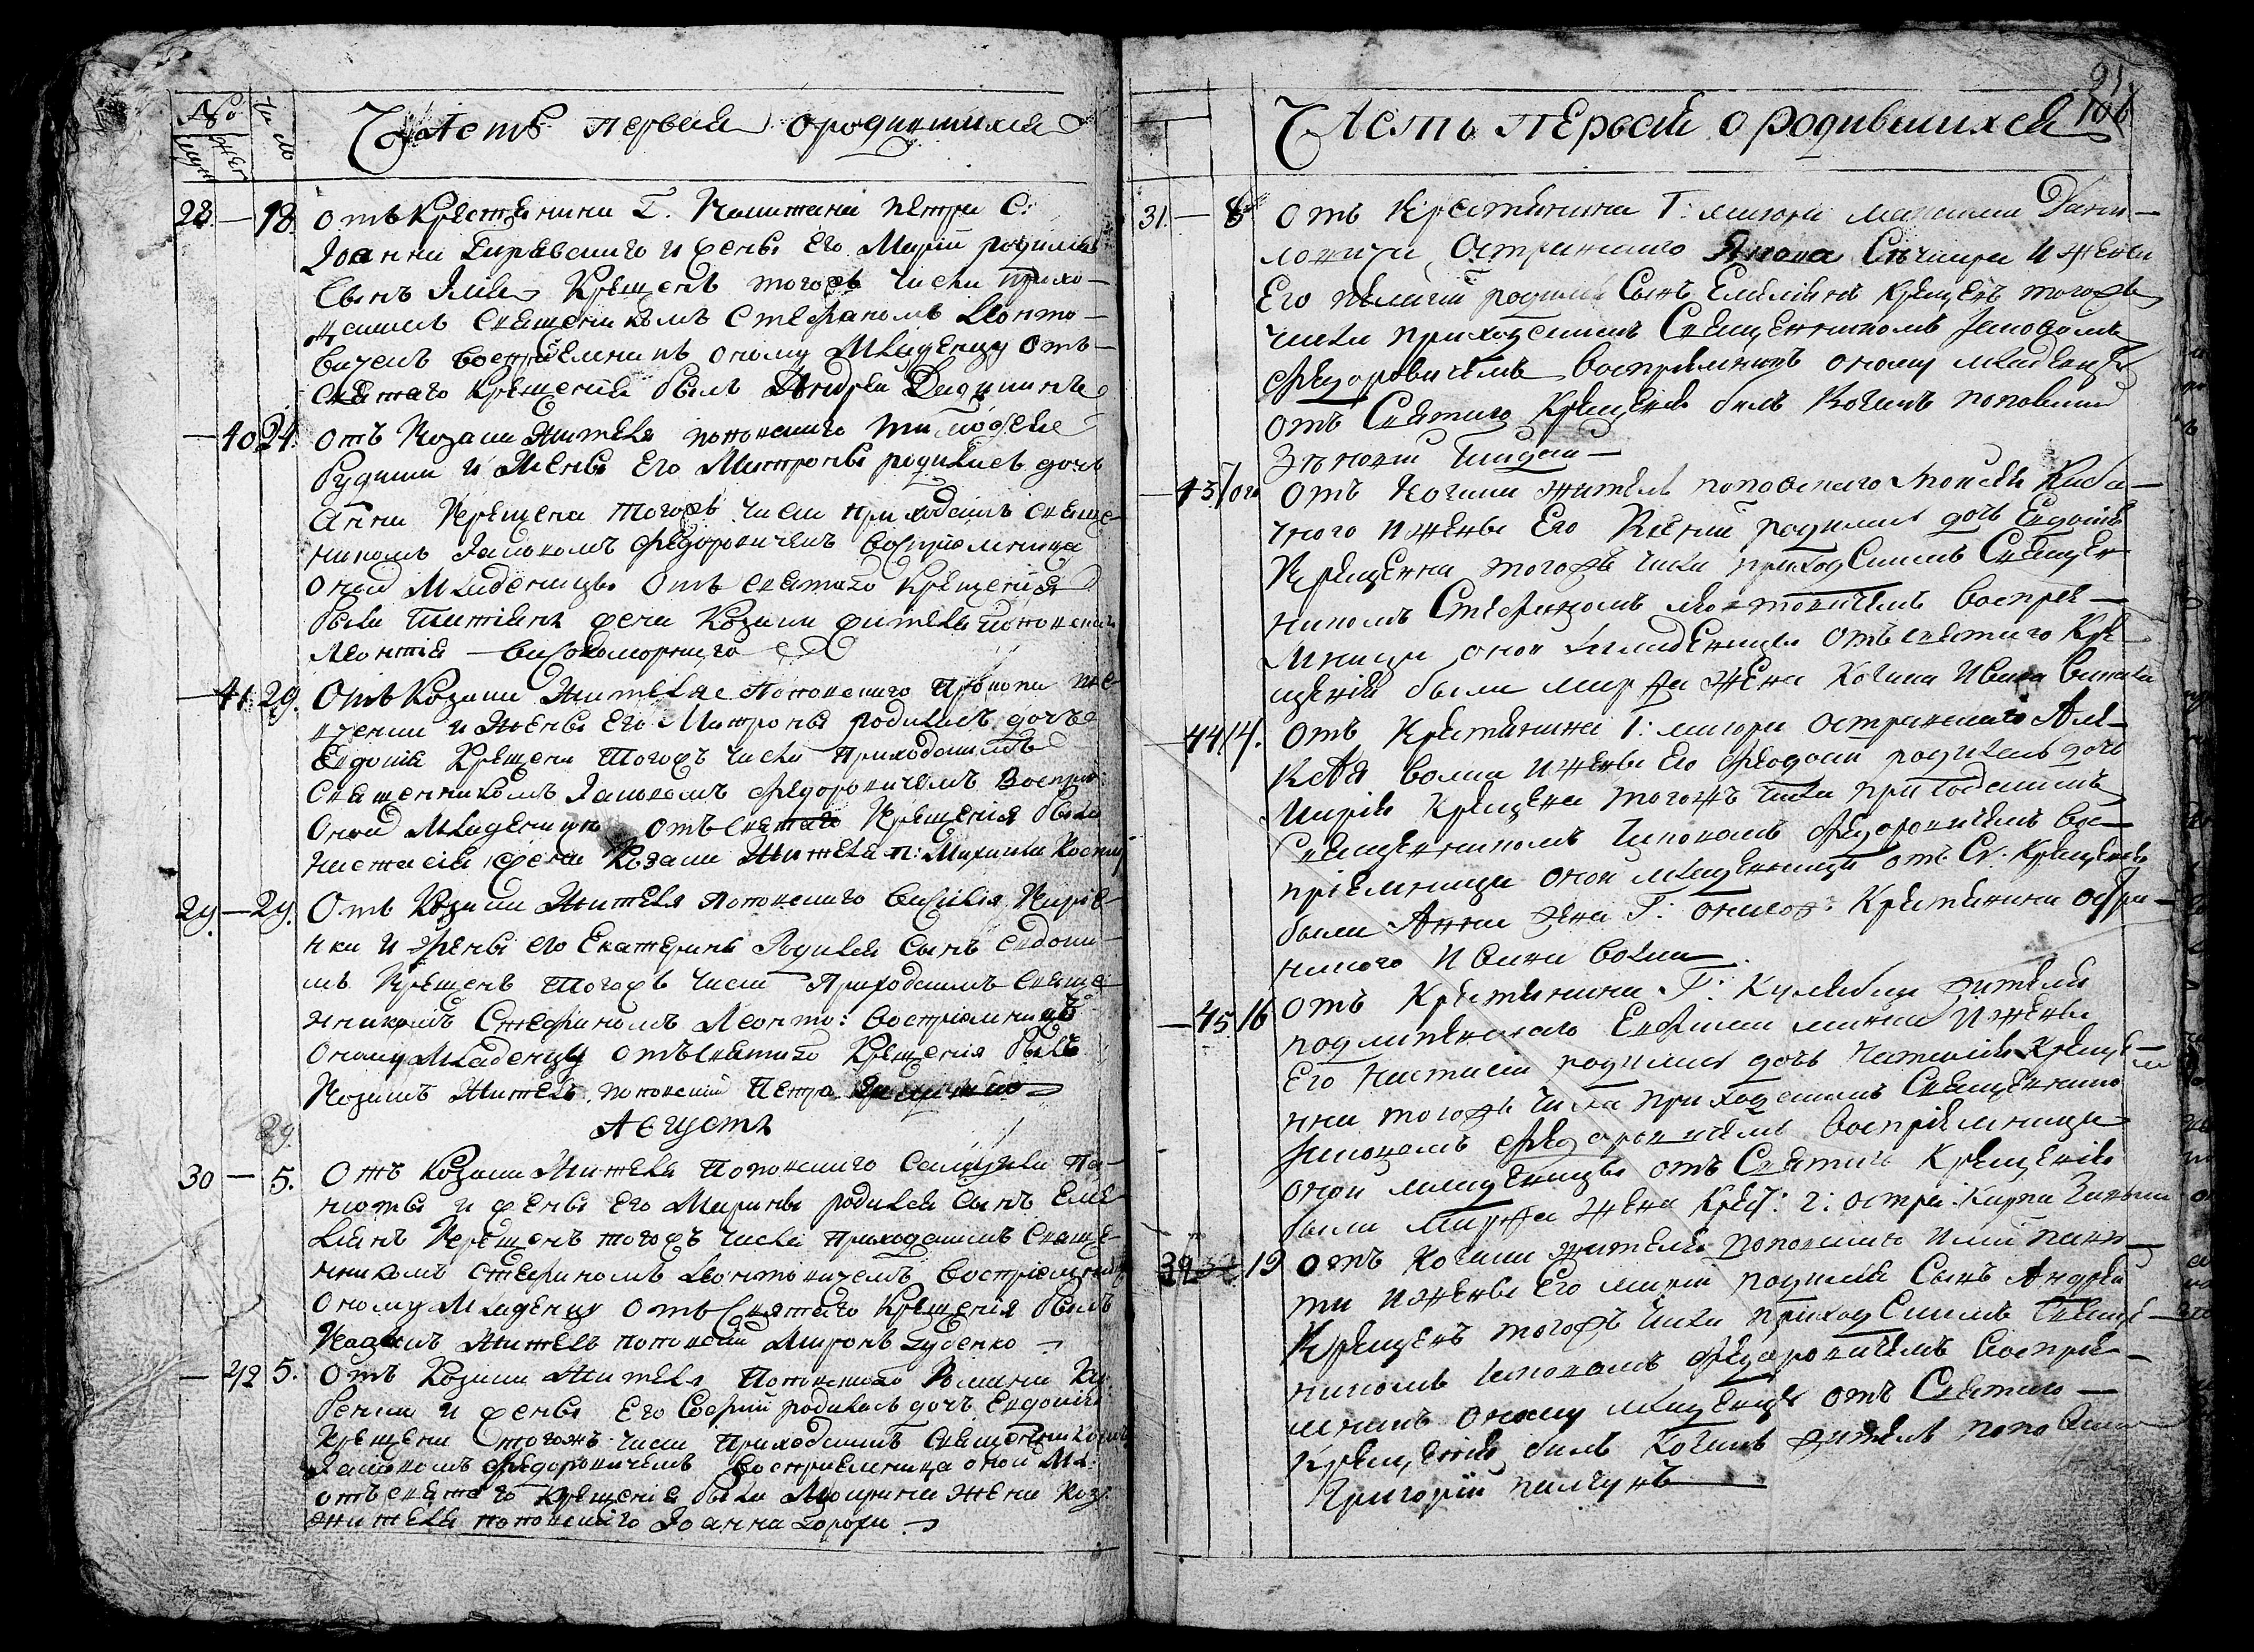 № Число
Часть первая о родившихся
28 — 18 отъ Крестянина Г. Капитана Петра С:
Іоанна и жены его Маріи родился
Сынъ Илія Крещенъ тогожъ числа прихо-
дскимъ Священикомъ Стефаномъ Леонто-
вичемъ воспріемникъ оному Младенцу Отъ
Святаго Крещенія былъ Андрей
— 40 24. отъ Козака Жителя поповского Тимофея
Рудки и Жены Его Матроны родилась дочь
Анна Крещена тогожъ числа приходскимъ свяще-
никомъ Іаковомъ Федоровичемъ воспріемница
оной Младеницы Отъ святаго Крещенія
была Татіяна жена Козака жителя поповского
Леонтія Високоморнего
— 41 29. Отъ Козака Жителя Поповского Прокопа
и Жены Его Матроны родилась дочь
Евдокія Крещена Тогожъ числа Приходскимъ
Священникомъ Іаковомъ Федоровичемъ Воспріе:
Оной Младеницы отъ святаго Крещенія была
Настасія жена Козака Жителя п: Михаила
29. — 29. Отъ Козака Жителя Поповского Василія Киріе-
нка и Жены его Екатерины Родился Сынъ Евдоки-
мъ Крещенъ Тогожъ числа Приходскимъ свяще-
никомъ Стефаномъ Леонто: воспріемникъ
Оному Младенцу отъ святаго Крещенія былъ
Козакъ Житель поповскій Петръ
29.
Августъ
30 — 5. Отъ Козака Жителя Поповского Самуила Па-
нюты и жены Его Марины родился Сынъ Еме-
ліанъ Крещенъ тогожъ числа Приходскимъ Свяще-
нникомъ Стефаномъ Леонтовичемъ Воспріемникъ
Оному Младенцу Отъ Святаго Крещенія былъ
Козакъ Житель поповскій Миронъ Руденко
— 42 5. Отъ Козака Жителя Поповского Романа
и жены Его Софіи родилась дочь Евдокія
Крещена тогожъ числа Приходскимъ Священникомъ
Іаковомъ Федоровичемъ Воспріемница оной Мл:
отъ святаго крещенія была Марина Жена Коз:
жителя поповского Іоанна Горохи
91
106
Часть первая о родившихся
31. — 8 Отъ Крестянина Г: маіора Максима Дани-
ловича Остранского Якова и Жены
Его Пелагіи родился Сынъ Емеліянъ крещенъ тогожъ
числа приходскимъ Священникомъ Іаковомъ
Федоровичемъ воспріемникъ оному младенцу
отъ Святаго Крещенія былъ Козакъ поповскій

— 43 10го Отъ Козака жителя поповского Моисея Каба-
чного и жены Его Ксеніи родилась дочь Евдокія
Крещенна тогожъ числа приходскимъ Священ-
никомъ Стефаномъ Леонтовичемъ воспріе-
мница оной младеницы отъ святаго Кре-
щенія была Марфа жена Козака Ивана
— 44 14. Отъ Крестянина Г: маіора Остранского Але-
ксѣя Волка и жены Его Феодосіи родилась дочь
Марія Крещена тогожъ числа приходскимъ
Священникомъ Іаковомъ Федоровичемъ вос-
пріемница оной младеницы отъ Св: Крещенія
была Анна жена Г: Крестянина Остра-
нского Ивана Волка
— 45 16 отъ Крестянина Г: Кулябки жителя
Евфима и жены
Его Настасіи родилась дочь Наталія Креще-
нна тогожъ числа приходскимъ Священнико-
мъ Іаковомъ Федоровичемъ воспріемница
оной младеницы отъ Святаго Крещенія
была Марфа жена Крест: г: Остра: Карпа
32 32 19 отъ Козака жителя поповского Иліи Паню-
ти и жены Его Маріи родился Сынъ Андрей
Крещенъ тогожъ числа приходскимъ Священ-
никомъ Іаковомъ Федоровичемъ воспріе-
мникъ оному младенцу отъ Святаго
Крещенія былъ Козакъ житель поповскій
Григорій